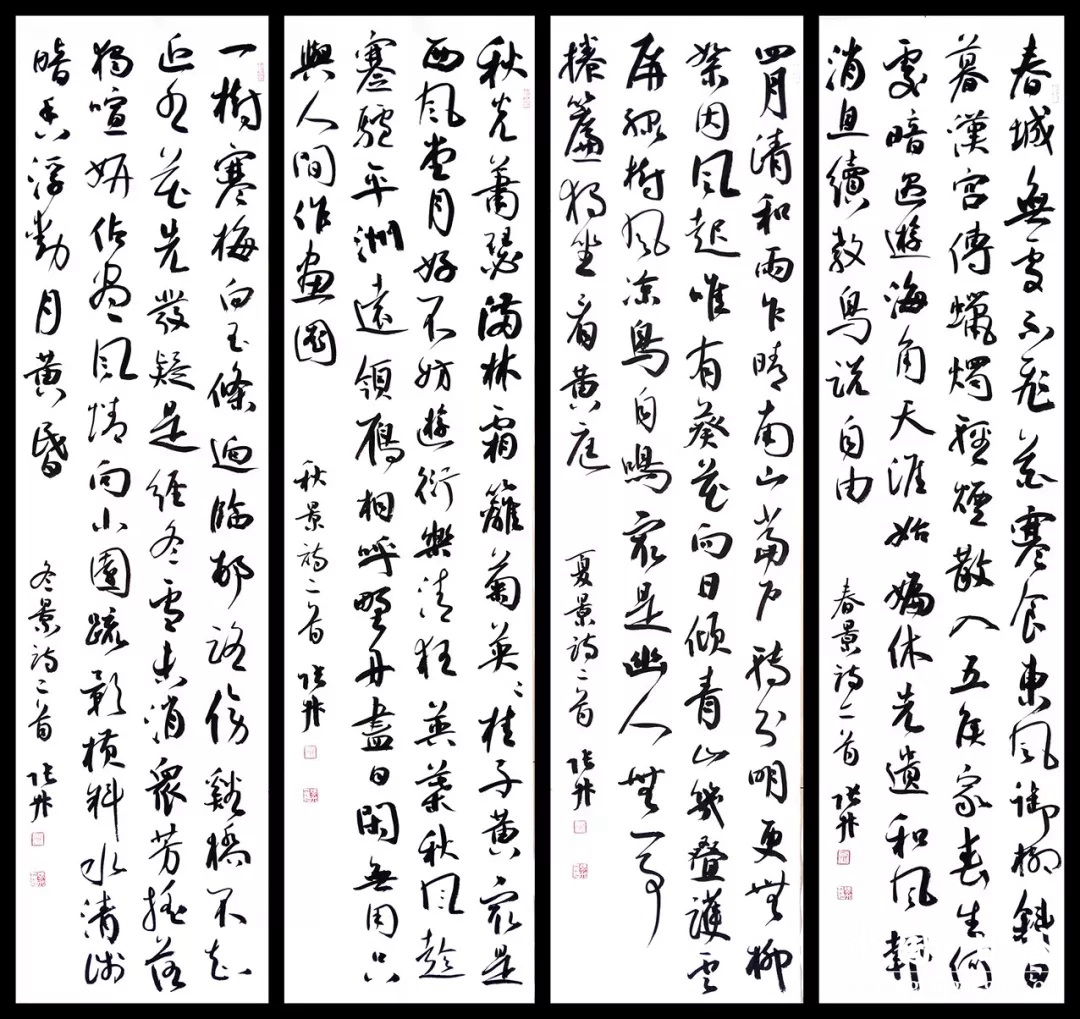 春城無處不飛花寒食東風御柳斜日
暮漢宮傳蠟燭輕煙散入五侯家春生何
處暗遊海角天涯始休先遣和風報
消息續教鳥說自由
春景詩二首 張
四月清和雨乍晴南山當戶轉分明更無柳
絮因風起唯有葵花向日傾青山幾疊護雲
屏綠樹風涼鳥自鳴最是幽人無一事
捲簾獨坐看黃庭
夏景詩二首 張
秋光蕭瑟滿林霜籬菊英〻桂子黃最是
西風當月好不妨遊衍樂清狂黃葉秋風趁
蹇驢平洲遠領雁相呼野舟盡日閑無用只
與人間作畫圖
秋景詩二首 張
一樹寒梅白玉條迥臨邨路傍谿橋不知
近水花先發疑是經冬雪未消眾芳搖落
獨暄妍佔盡風情向小園疏影橫斜水清淺
暗香浮動月黃昏
冬景詩二首 張